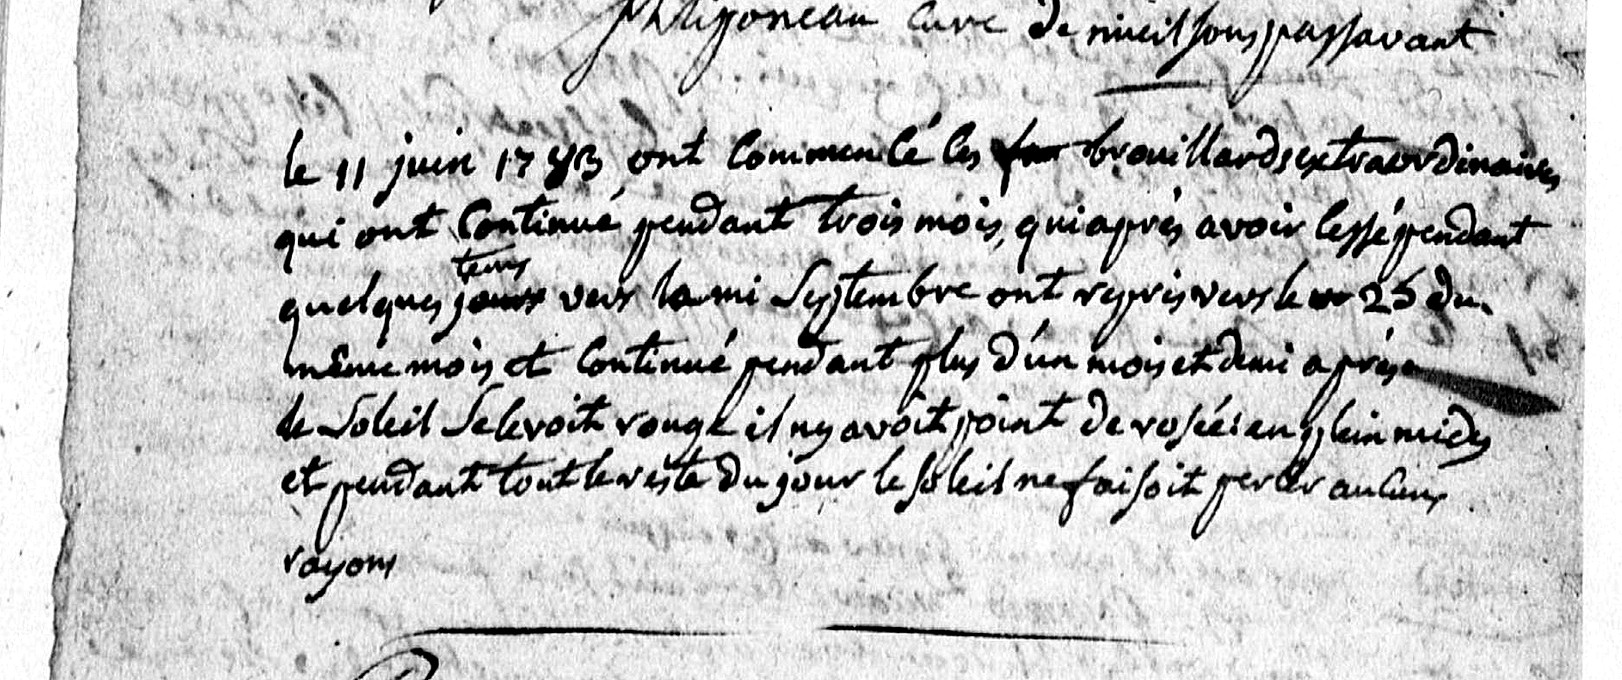 curé de nueil sous passavant
le 11 juin 1783 ont commencé les brouillards extraordinaires
qui ont continué pendant trois mois, qui après avoir cessé pendant
tems
quelques jours vers la mi septembre ont repris vers le 25 du
même mois et continué pendant plus d'un mois et demi après
le soleil se levoit rouge il ny avoit point de rosées en plein midy
et pendant tout le reste du jour le soleil ne faisoit percer aucuns
rayons